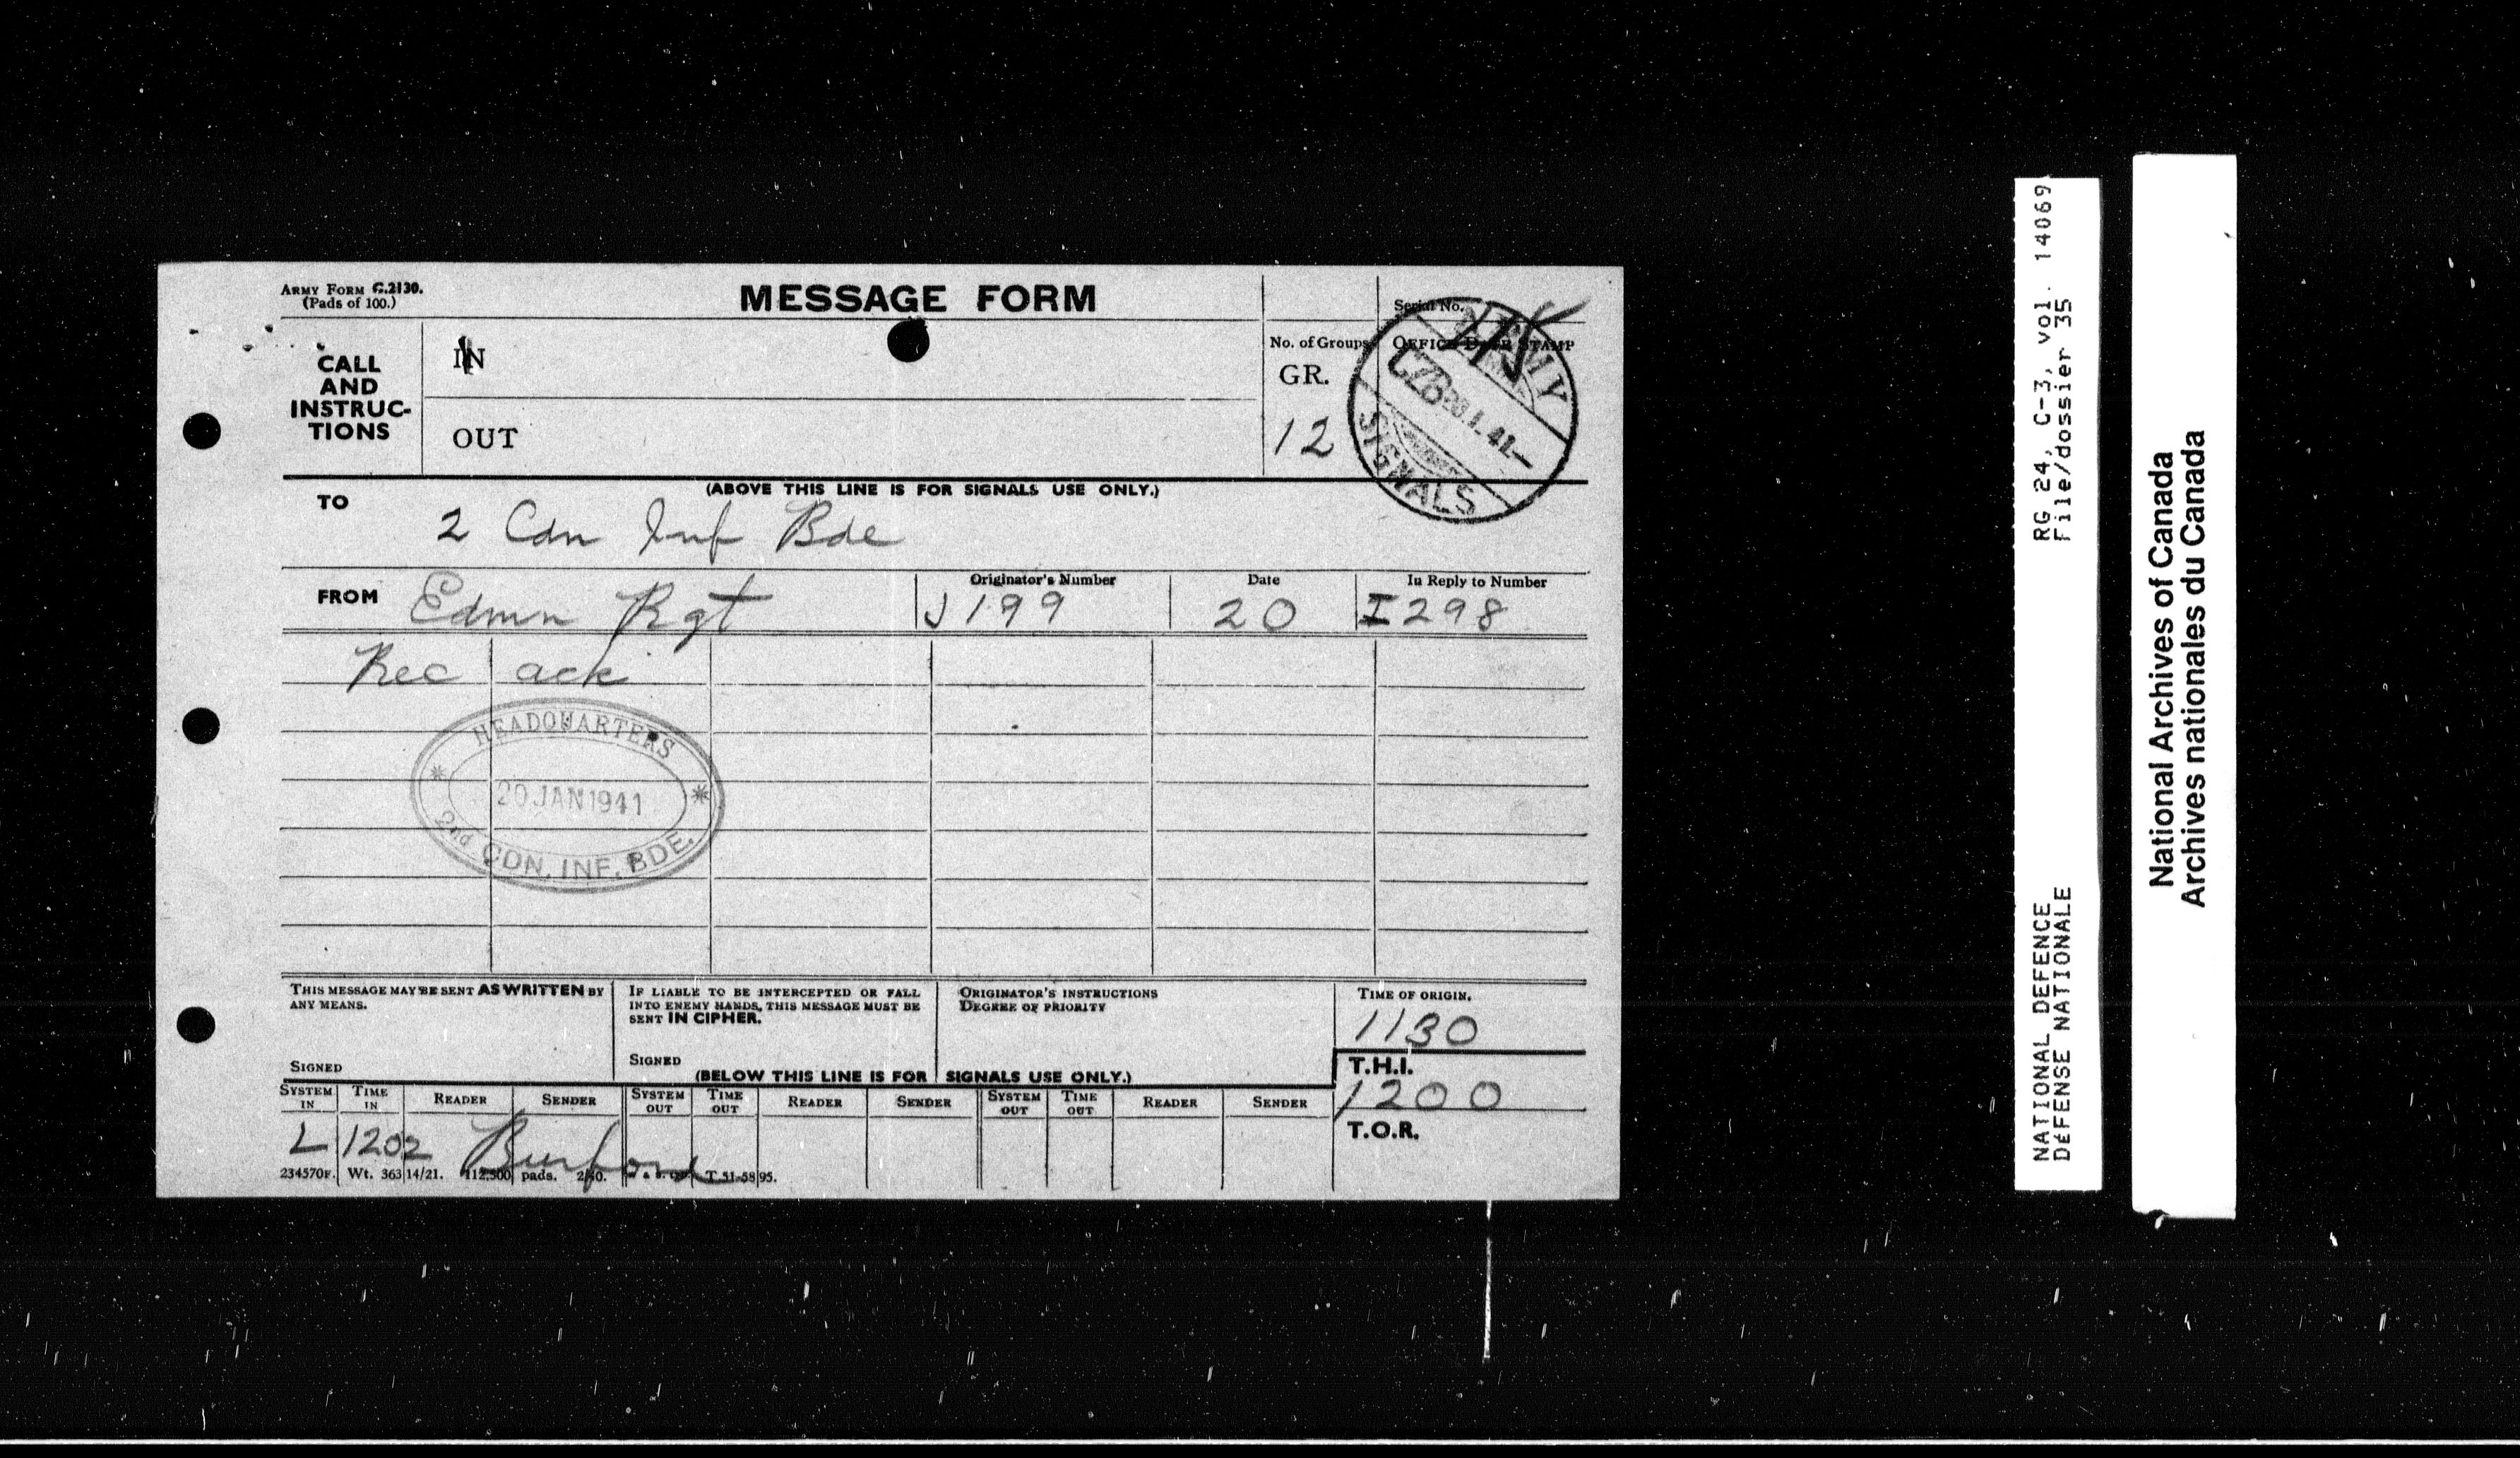 ARMY FORM C.2130.
(Pads of 100.)
MESSAGE FORM
Serial No.
CALL
AND
INSTRUC-
TIONS
IN
OUT
No. of Groups
GR.
12
OFFICE DATE STAMP
ARMY
CZB
20.1.41
SIGNALS
(ABOVE THIS LINE IS FOR SIGNALS USE ONLY.)
TO
2 Cdn Inf Bde
FROM
Edmn Rgt
Originator's Number
J199
Date
20
In Reply to Number
I298
Rec ack
HEADQUARTERS
20 JAN 1941
2nd CDN. INF. BDE.
THIS MESSAGE MAY BE SENT AS WRITTEN BY
ANY MEANS.
SIGNED
IF LIABLE TO BE INTERCEPTED OR FALL
INTO ENEMY HANDS, THIS MESSAGE MUST BE
SENT IN CIPHER.
SIGNED
ORIGINATOR'S INSTRUCTIONS
DEGREE OF PRIORITY
TIME OF ORIGIN.
1130
(BELOW THIS LINE IS FOR SIGNALS USE ONLY.)
T.H.I.
1200
T.O.R.
SYSTEM IN TIME IN READER SENDER SYSTEM OUT TIME OUT READER SENDER SYSTEM OUT TIME OUT READER SENDER
L 1202 Burford
234570F. Wt. 36314/21. 112,500 pads. 2/40. T.51-5895.
RG 24, C-3, vol. 14069
File/dossier 35
NATIONAL DEFENCE
DÉFENSE NATIONALE
National Archives of Canada
Archives nationales du Canada